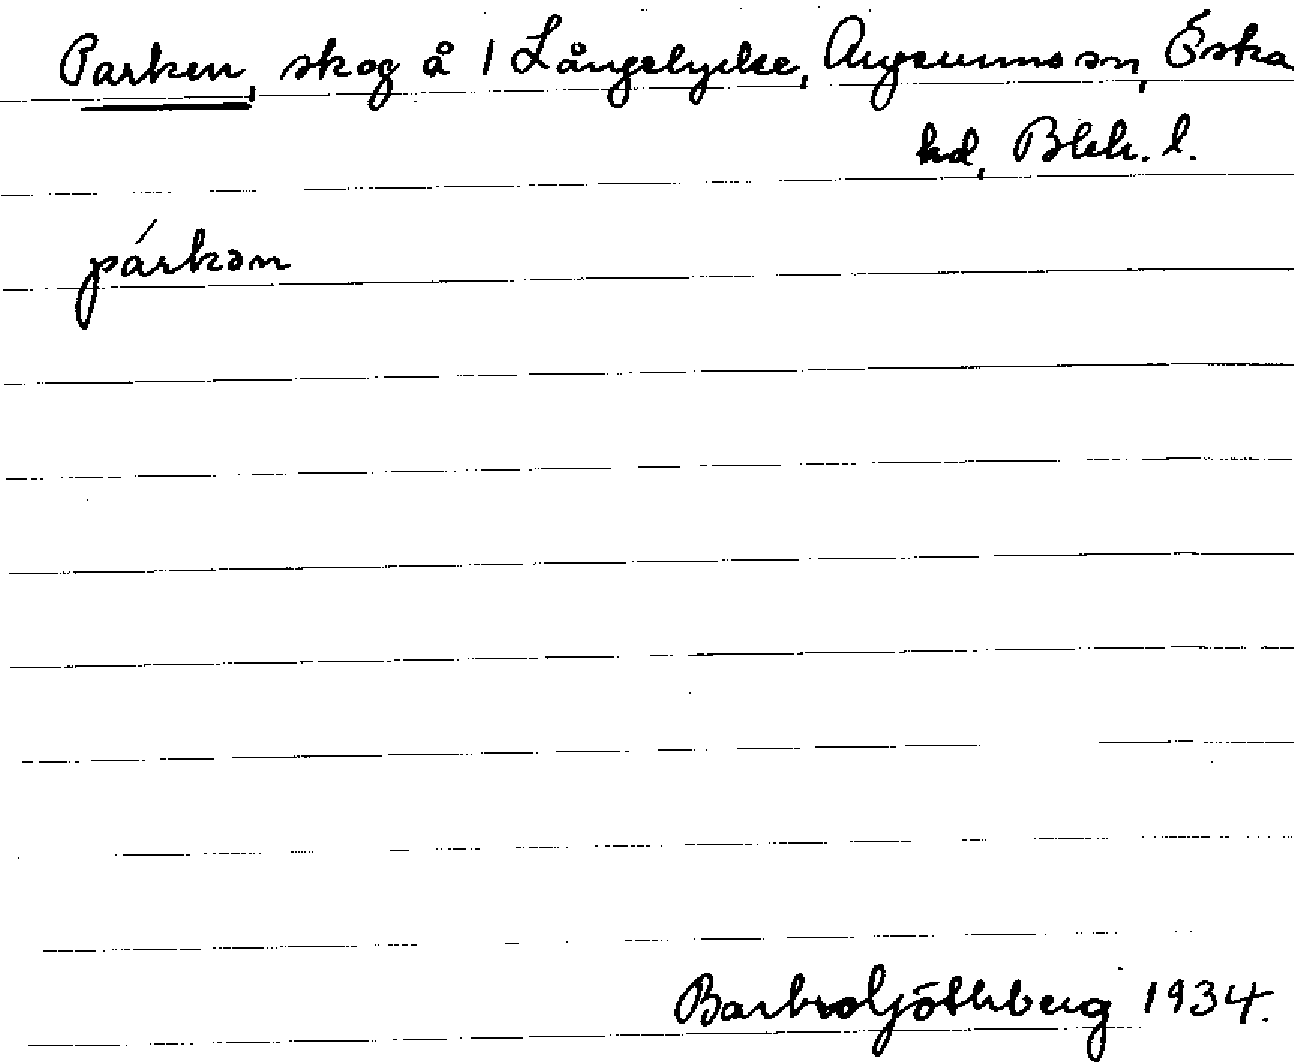 Parken, skog å 1 Långelycke, Augerums sn, Östra
hd, Blek. l.
párkən
Barbro Ljöthberg 1934.